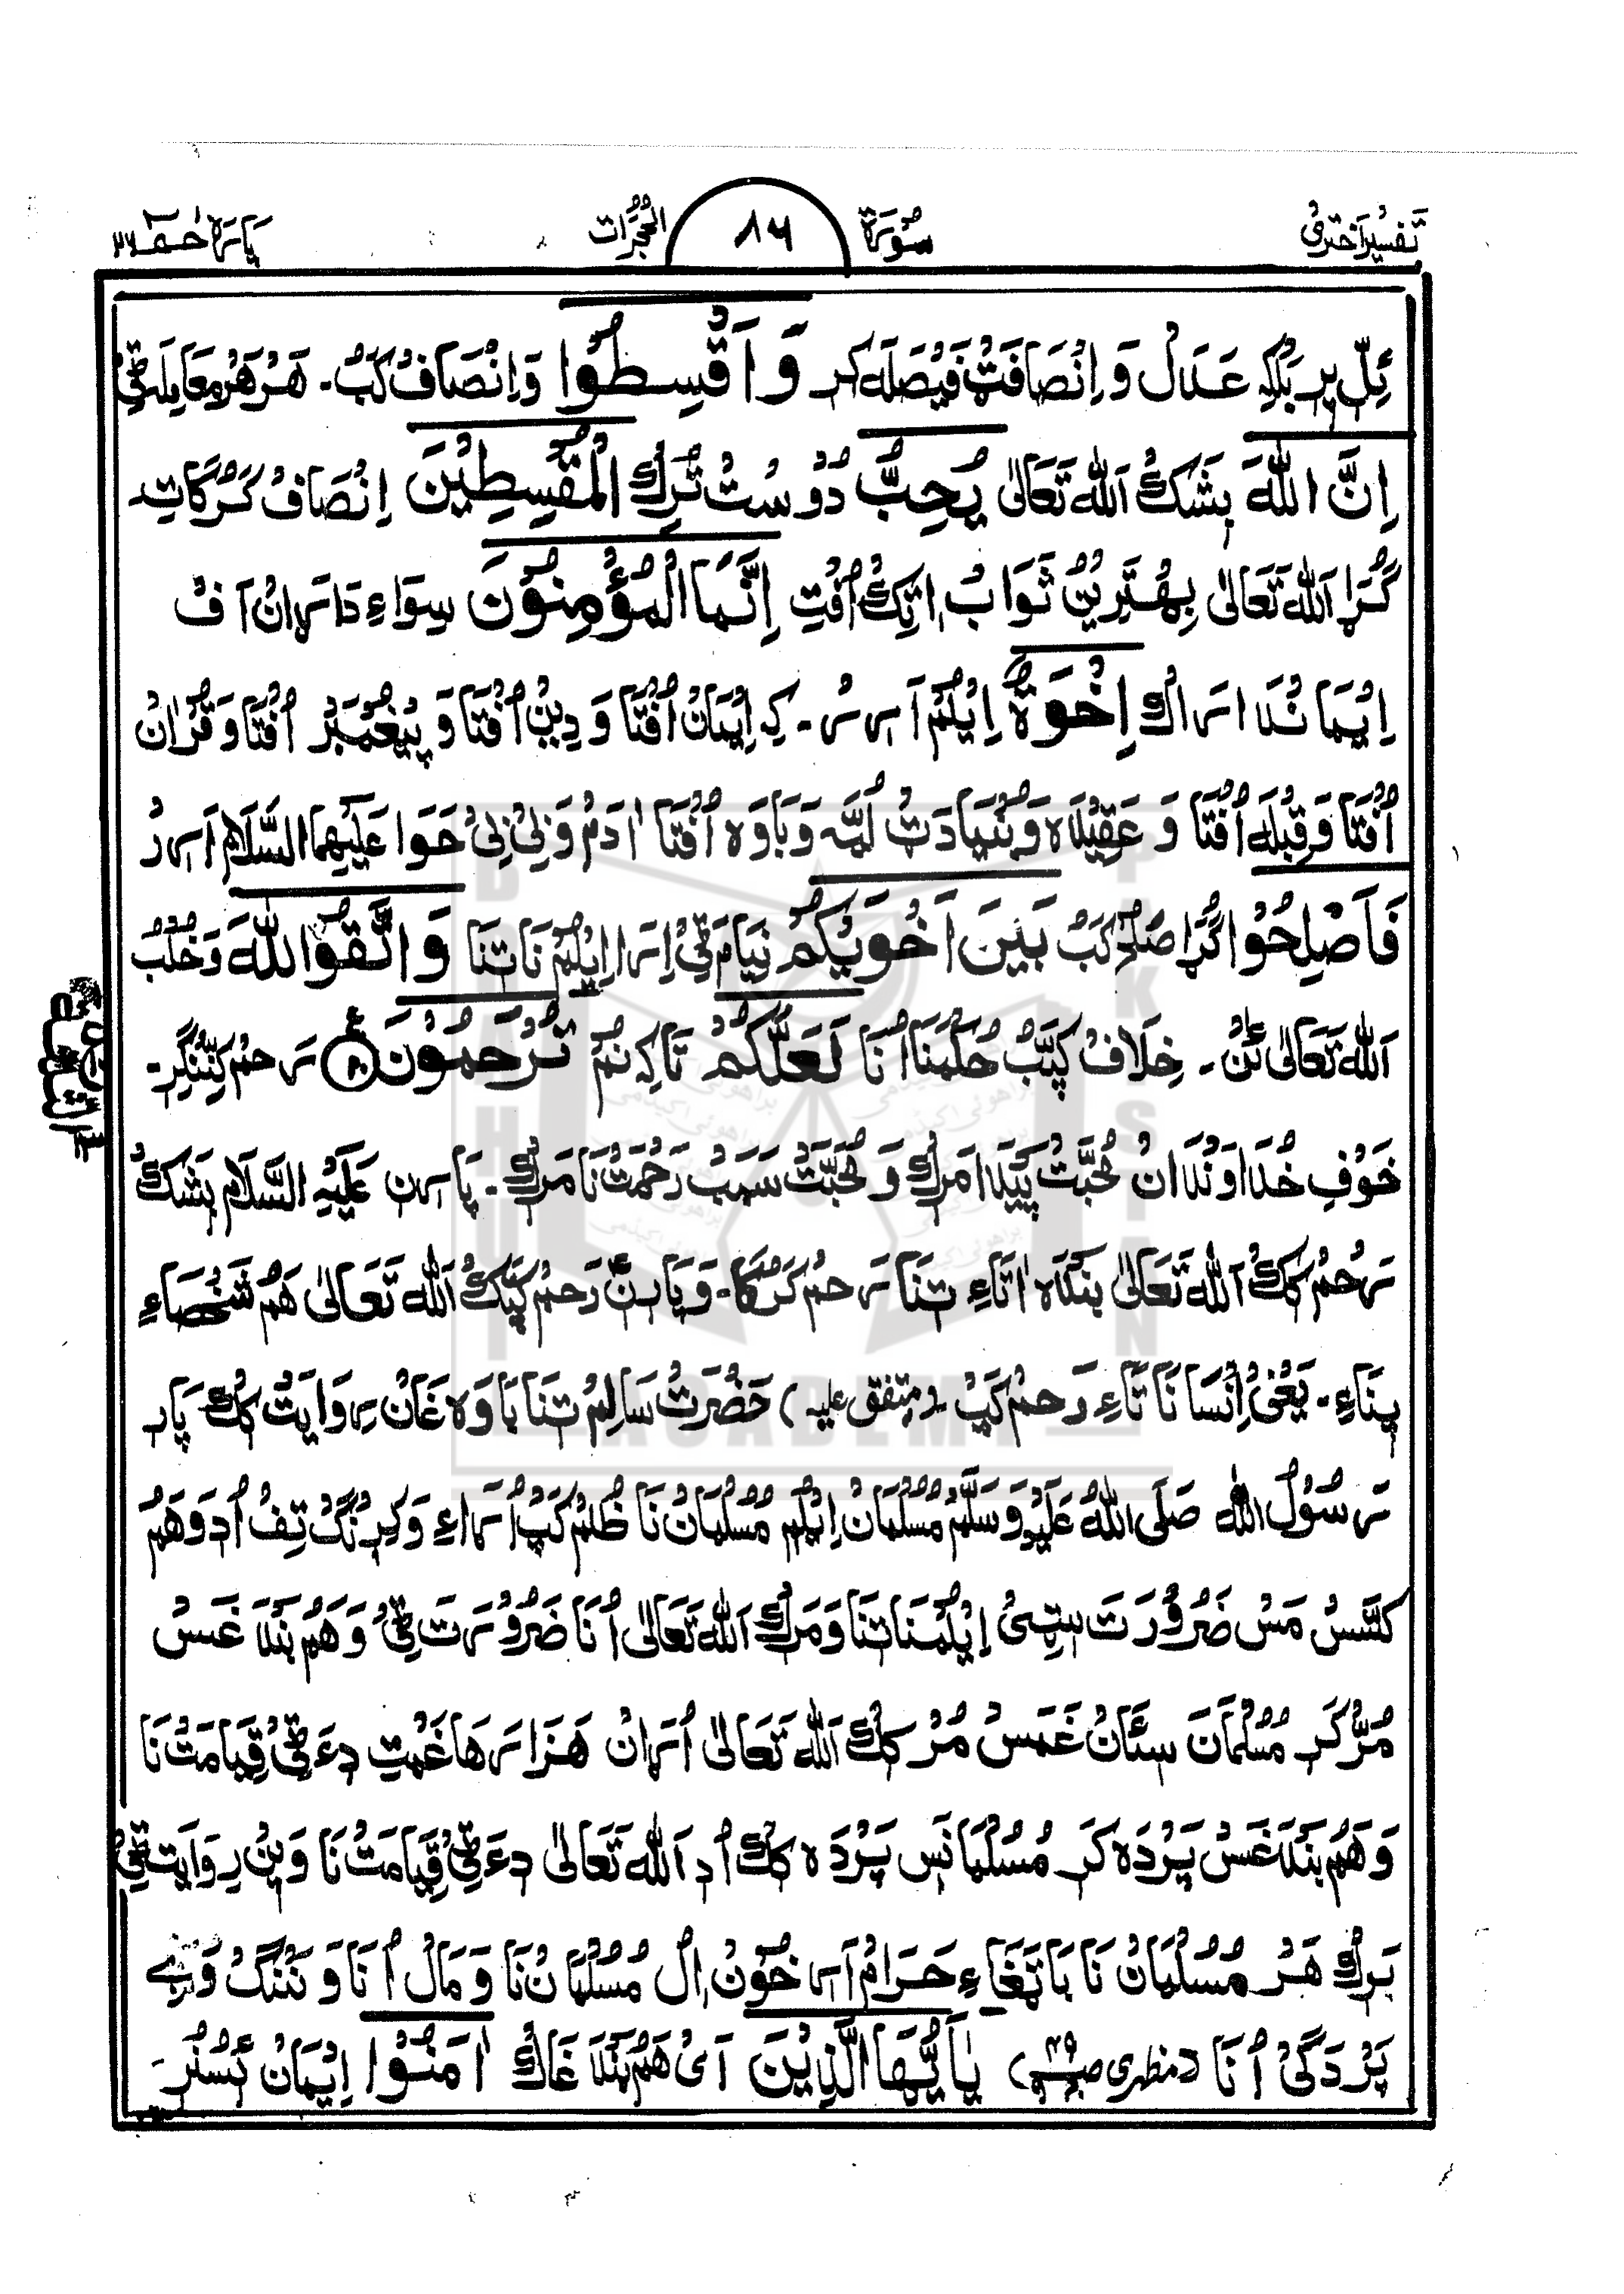 تَفسِیر اَختَرِی سُورَة ۸۶ الحُجُرَات پَارَه حٰمٓ ۲۶
ئِلّ پِر بَلْکِه عَدَلْ وَ اِنْصَافَتْ فَیْصَلَه کَر وَ اَقْسِطُوْا وَ اِنْصَافْ کَبْ۔ هَرْ هَرْ مُعَامِلَه ٹِیْ
اِنَّ اللّٰهَ بِشَکْ اَللّٰه تَعَالٰی یُحِبُّ دُوْسْتْ تُرِکْ الْمُقْسِطِیْنَ اِنْصَافْ کَرْکَاتِ
کُرَا اَللّٰه تَعَالٰی بِهْتَرِیْنْ ثَوَابْ اِتِکْ اُفْتِ اِنَّمَا الْمُؤْمِنُوْنَ سِوَاءِ دَارَانْ اَفْ
اِیْمَانْدَارَاکْ اِخْوَةٌ اِیْلُمْ اَرِرْ۔ کِه اِیْمَانْ اُفْتَا وَ دِیْنْ اُفْتَا وَ پَیْغَمْبَرْ اُفْتَا وَ قُرْاٰنْ
اُفْتَا وَ قِبْلَه اُفْتَا وَ عَقِیْدَه وَ بُنْیَادَتْ لُمَّه وَ بَاوَه اُفْتَا اٰدَمْ وَ بِیْ بِیْ حَوَا عَلَیْهِمَا السَّلَامْ اَرِرْ
فَاَصْلِحُوْا کُرَا صُلْحْ کَبْ بَیْنَ اَخَوَیْکُمْ نِیَامْ ٹِیْ اِرَا اِیْلُمْ نَا تِنَا وَ اتَّقُوا اللّٰهَ وَ خُلْبْ
اَللّٰه تَعَالٰی ئَنْ۔ خِلَافْ کَپَّبْ حُکْمْنَا اُنَا لَعَلَّکُمْ تَاکِه نُمْ تُرْحَمُوْنَ ۱۰ رَحمْ کِنِّنْگِر۔
خَوْفِ خُدَاوَنْدَانْ مُحَبَّتْ پَیْدَا مَرِکْ وَ مُحَبَّتْ سَبَبْ رَحْمَتْ نَا مَرِکْ۔ پَارِن عَلَیْهِ السَّلَامْ بِشَکْ
رَحْمْ کِکْ اَللّٰه تَعَالٰی بَنْدَه اٰتَاءِ تِنَا رَحمْ کَرْکَا۔ وَ پَارِنَّ رَحمْ کَپَکْ اَللّٰه تَعَالٰی هَمْ شَخْصَاءِ
بِنَاءِ۔ یَعْنِیْ اِنْسَانَاتَاءِ رَحمْ کَپْ (متفق علیه) حَضْرَتْ سَالِمْ تِنَا بَاوَه غَانْ رِوَایَتْ کِکْ پَارِ
رَسُوْلُ اللّٰه صَلَی اللّٰهُ عَلَیْهِ وَسَلَّمْ مُسْلْمَانْ اِیْلُمْ مُسْلْمَانْ نَا ظُلْمْ کَپْ اُرَاءِ وَ کِرِنْگْ تِفْ اُدِ وَ هَمْ
کَسَّسْ مَسْ ضَرُوْرَتَ ٹِیْ اِیْلُمْنَا تِنَا وَ مَرِکْ اَللّٰه تَعَالٰی اُنَا ضَرُوْرَتَ ٹِیْ وَ هَمْ بَنْدَغَسْ
مُرْ کَرِ مُسْلْمَانَ سِئَانْ غَمَسْ مُرْ کِکْ اَللّٰه تَعَالٰی اُرَانْ هَزَارْهَا غَمْتِ دِءَ ٹِیْ قِیَامَتْ نَا
وَ هَمْ بَنْدَغَسْ پَرْدَه کَرِ مُسْلْمَانَسِ پَرْدَه کِکْ اُدِ اَللّٰه تَعَالٰی دِءَ ٹِیْ قِیَامَتْ نَا وَ بِنْ رِوَایَت ٹِیْ
بَرِکْ هَرْ مُسْلْمَانْ نَا بَاتَغَاءِ حَرَامْ اَرِ خُوْنْ اِلْ مُسْلْمَانْ نَا وَ مَالْ اُنَا وَ نَنْگْ وَ بے
پَرْدَگِیْ اُنَا (مظهری صـ۴۹) یٰاَیُّهَا الَّذِیْنَ اَیْ هَمْ بَنْدَغَاکْ اٰمَنُوْا اِیْمَانْ هَسُنُرْ۔